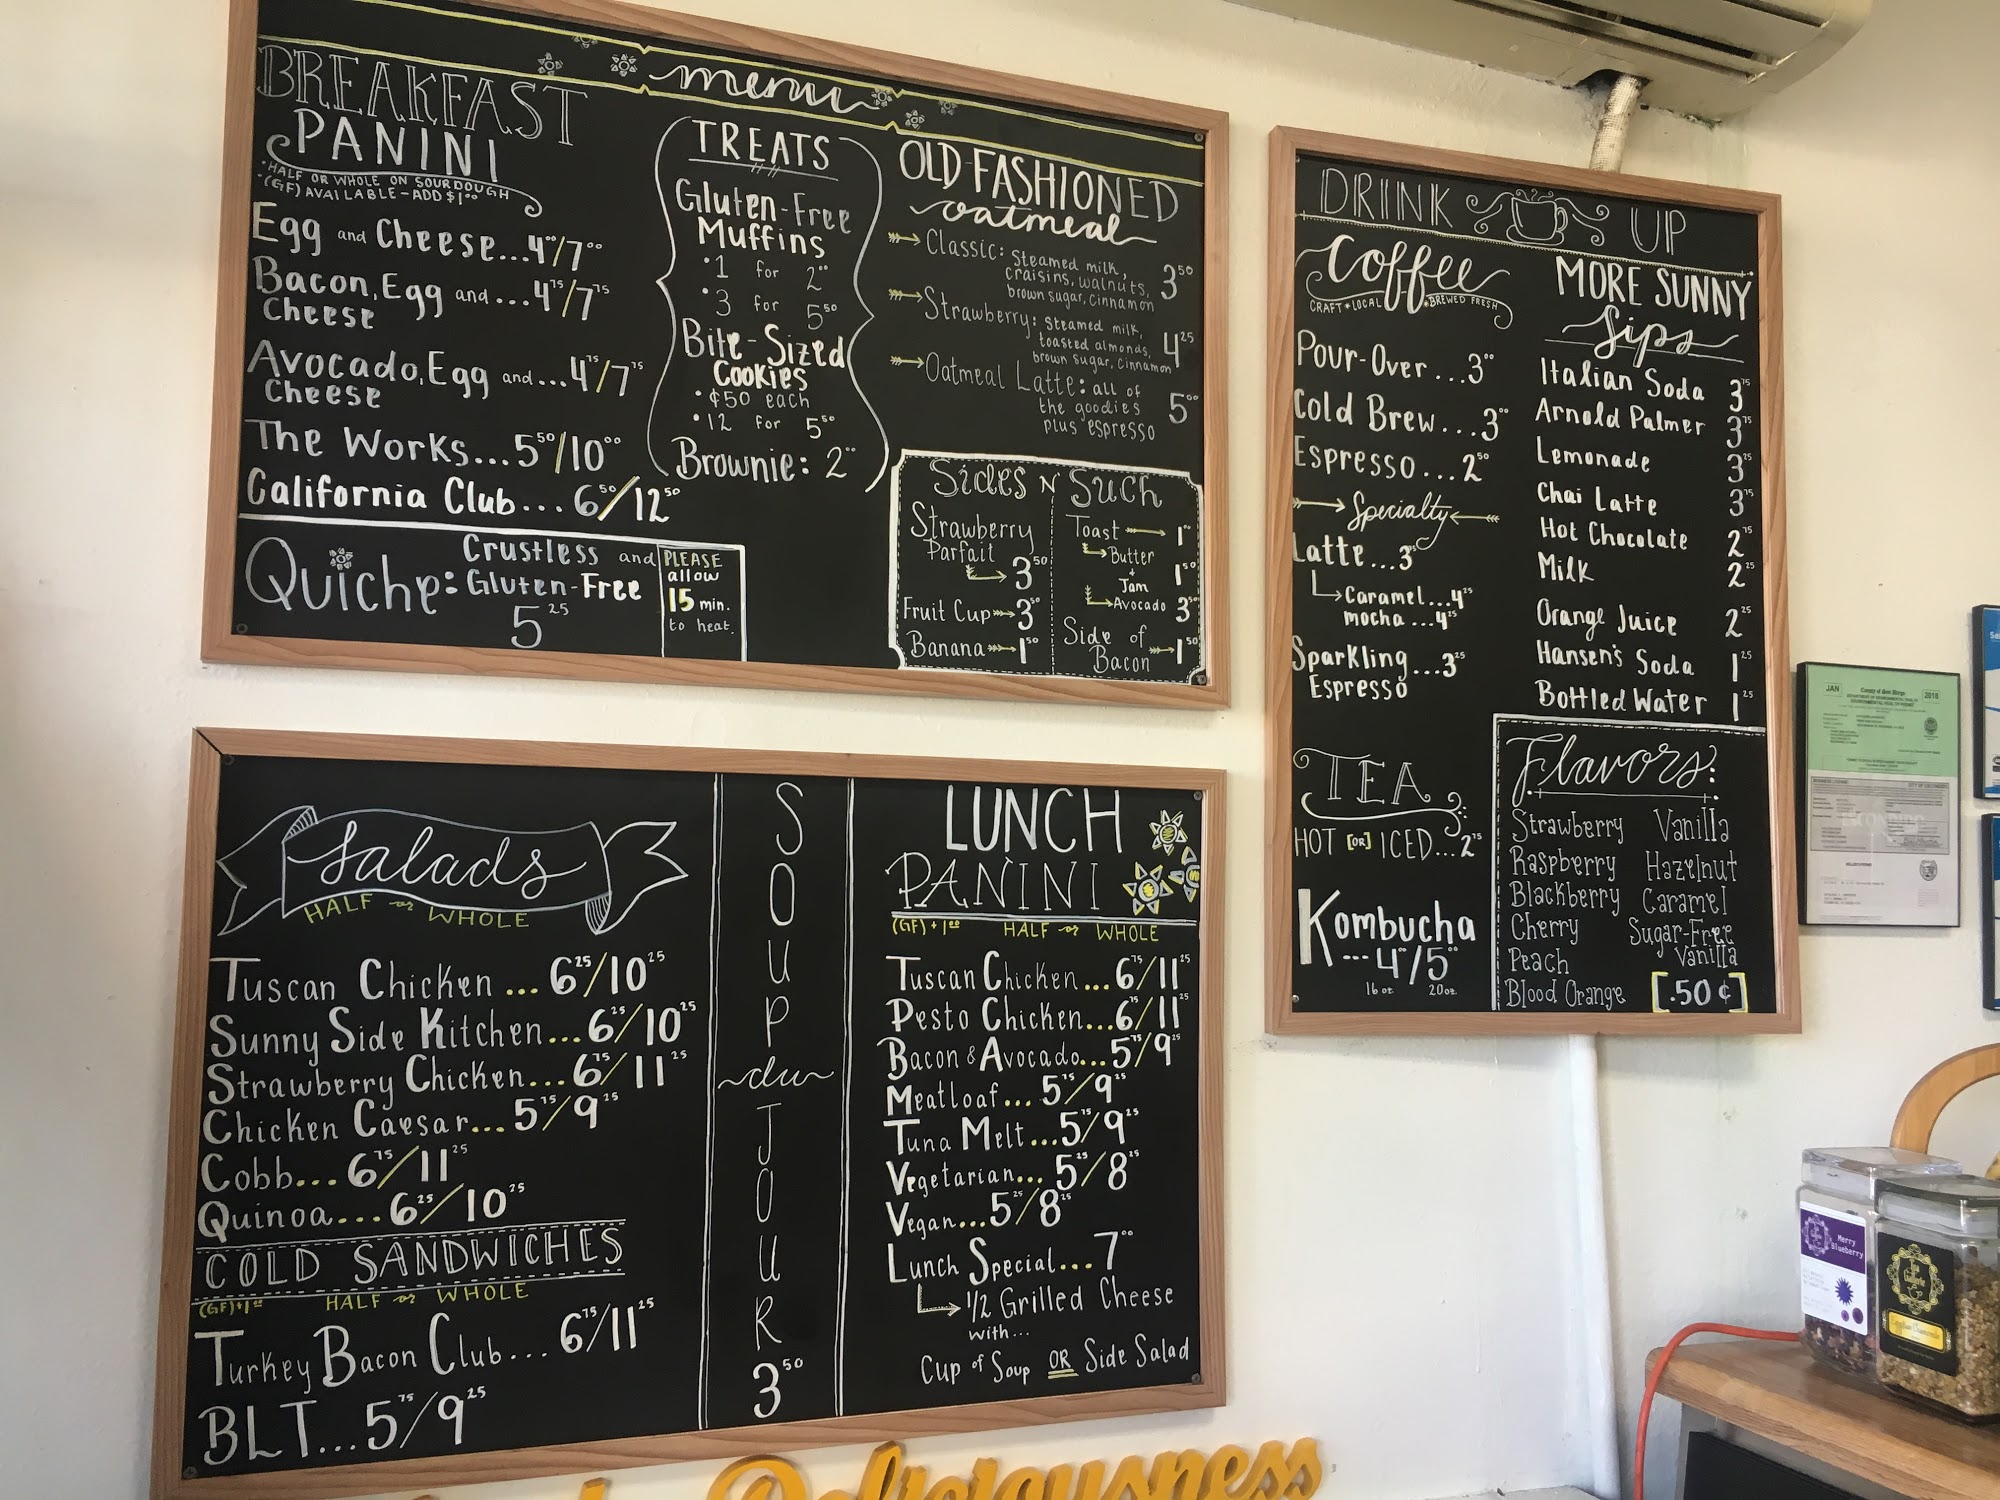 menu
BREAKFAST
PANINI
•HALF OR WHOLE ON SOURDOUGH
•(GF) AVAILABLE - ADD $1.00
Egg and Cheese...4.00/7.00
Bacon, Egg and...4.75/7.75
Cheese
Avocado, Egg and...4.75/7.75
Cheese
The Works...5.50/10.00
California Club...6.50/12.50
Quiche: Crustless and
Gluten-Free
5.25
PLEASE
allow
15 min.
to heat.
TREATS
Gluten-Free
Muffins
•1 for 2.00
•3 for 5.50
Bite-Sized
Cookies
•¢50 each
•12 for 5.50
Brownie: 2.00
OLD-FASHIONED
oatmeal
Classic: steamed milk,
craisins, walnuts,
brown sugar, cinnamon 3.50
Strawberry: steamed milk,
toasted almonds,
brown sugar, cinnamon 4.25
Oatmeal Latte: all of
the goodies
plus espresso 5.00
Sides N Such
Strawberry
Parfait
3.50
Fruit Cup 3.50
Banana 1.50
Toast 1.00
Butter
+
Jam 1.50
Avocado 3.50
Side of
Bacon 1.50
Salads
HALF or WHOLE
Tuscan Chicken...6.25/10.25
Sunny Side Kitchen...6.25/10.25
Strawberry Chicken...6.75/11.25
Chicken Caesar...5.75/9.25
Cobb...6.75/11.25
Quinoa...6.25/10.25
COLD SANDWICHES
(GF)+1.00 HALF or WHOLE
Turkey Bacon Club...6.75/11.25
BLT...5.75/9.25
SOUP
du
JOUR
3.50
LUNCH
PANINI
(GF)+1.00 HALF or WHOLE
Tuscan Chicken...6.75/11.25
Pesto Chicken...6.75/11.25
Bacon & Avocado...5.75/9.25
Meatloaf...5.75/9.25
Tuna Melt...5.75/9.25
Vegetarian...5.25/8.25
Vegan...5.25/8.25
Lunch Special...7.00
1/2 Grilled Cheese
with...
Cup of Soup OR Side Salad
DRINK UP
Coffee
CRAFT • LOCAL • BREWED FRESH
Pour-Over...3.00
Cold Brew...3.00
Espresso...2.50
Specialty
Latte...3.75
Caramel...4.25
mocha...4.25
Sparkling...3.25
Espresso
TEA
HOT [OR] ICED...2.75
Kombucha
...4.00/5.00
16 oz. 20 oz.
MORE SUNNY
Sips
Italian Soda 3.75
Arnold Palmer 3.75
Lemonade 3.25
Chai Latte 3.75
Hot Chocolate 2.75
Milk 2.25
Orange Juice 2.25
Hansen's Soda 1.25
Bottled Water 1.25
Flavors:
Strawberry Vanilla
Raspberry Hazelnut
Blackberry Caramel
Cherry Sugar-Free
Peach Vanilla
Blood Orange [.50¢]
JAN
County of San Diego
2018
Merry
Blueberry
Egyptian Chamomile
Deliciousness